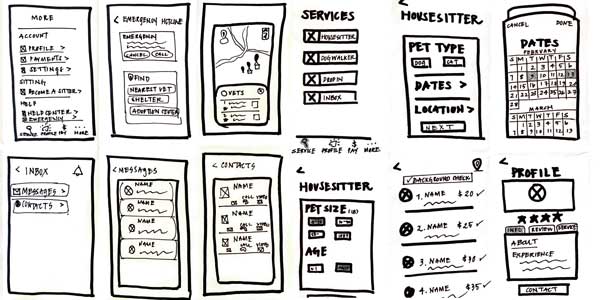 MORE
ACCOUNT
PROFILE >
PAYMENTS >
SETTINGS >
SITTING
BECOME A SITTER >
HELP
HELP CENTER >
EMERGENCY
PROFILE $ MORE
< EMERGENCY HOTLINE
EMERGENCY
CANCEL CALL
FIND
NEAREST VET
SHELTER
ADOPTION CENTER
VETS
SERVICES
HOUSESITTER
DOG WALKER
DROP IN
INBOX
SERVICE PROFILE PAY MORE
<
HOUSESITTER
PET TYPE
DOG CAT
DATES >
LOCATION >
NEXT
CANCEL DONE
DATES
FEBRUARY
S M T W T F S
MARCH
< INBOX
MESSAGES >
CONTACTS >
< MESSAGES
NAME
NAME
NAME
NAME
< CONTACTS
NAME
CALL VIDEO
NAME
CALL VIDEO
NAME
CALL VIDEO
<
HOUSESITTER
PET SIZE
AGE
<
✓ BACKGROUND CHECK
1. NAME $20 ✓
2. NAME $25 ✓
3. NAME $30 ✓
4. NAME $35 ✓
<
PROFILE
INFO REVIEW SERVICE
ABOUT
EXPERIENCE
CONTACT